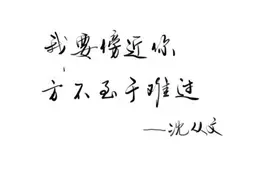 我要傍近你
方不至于难过
——沈从文